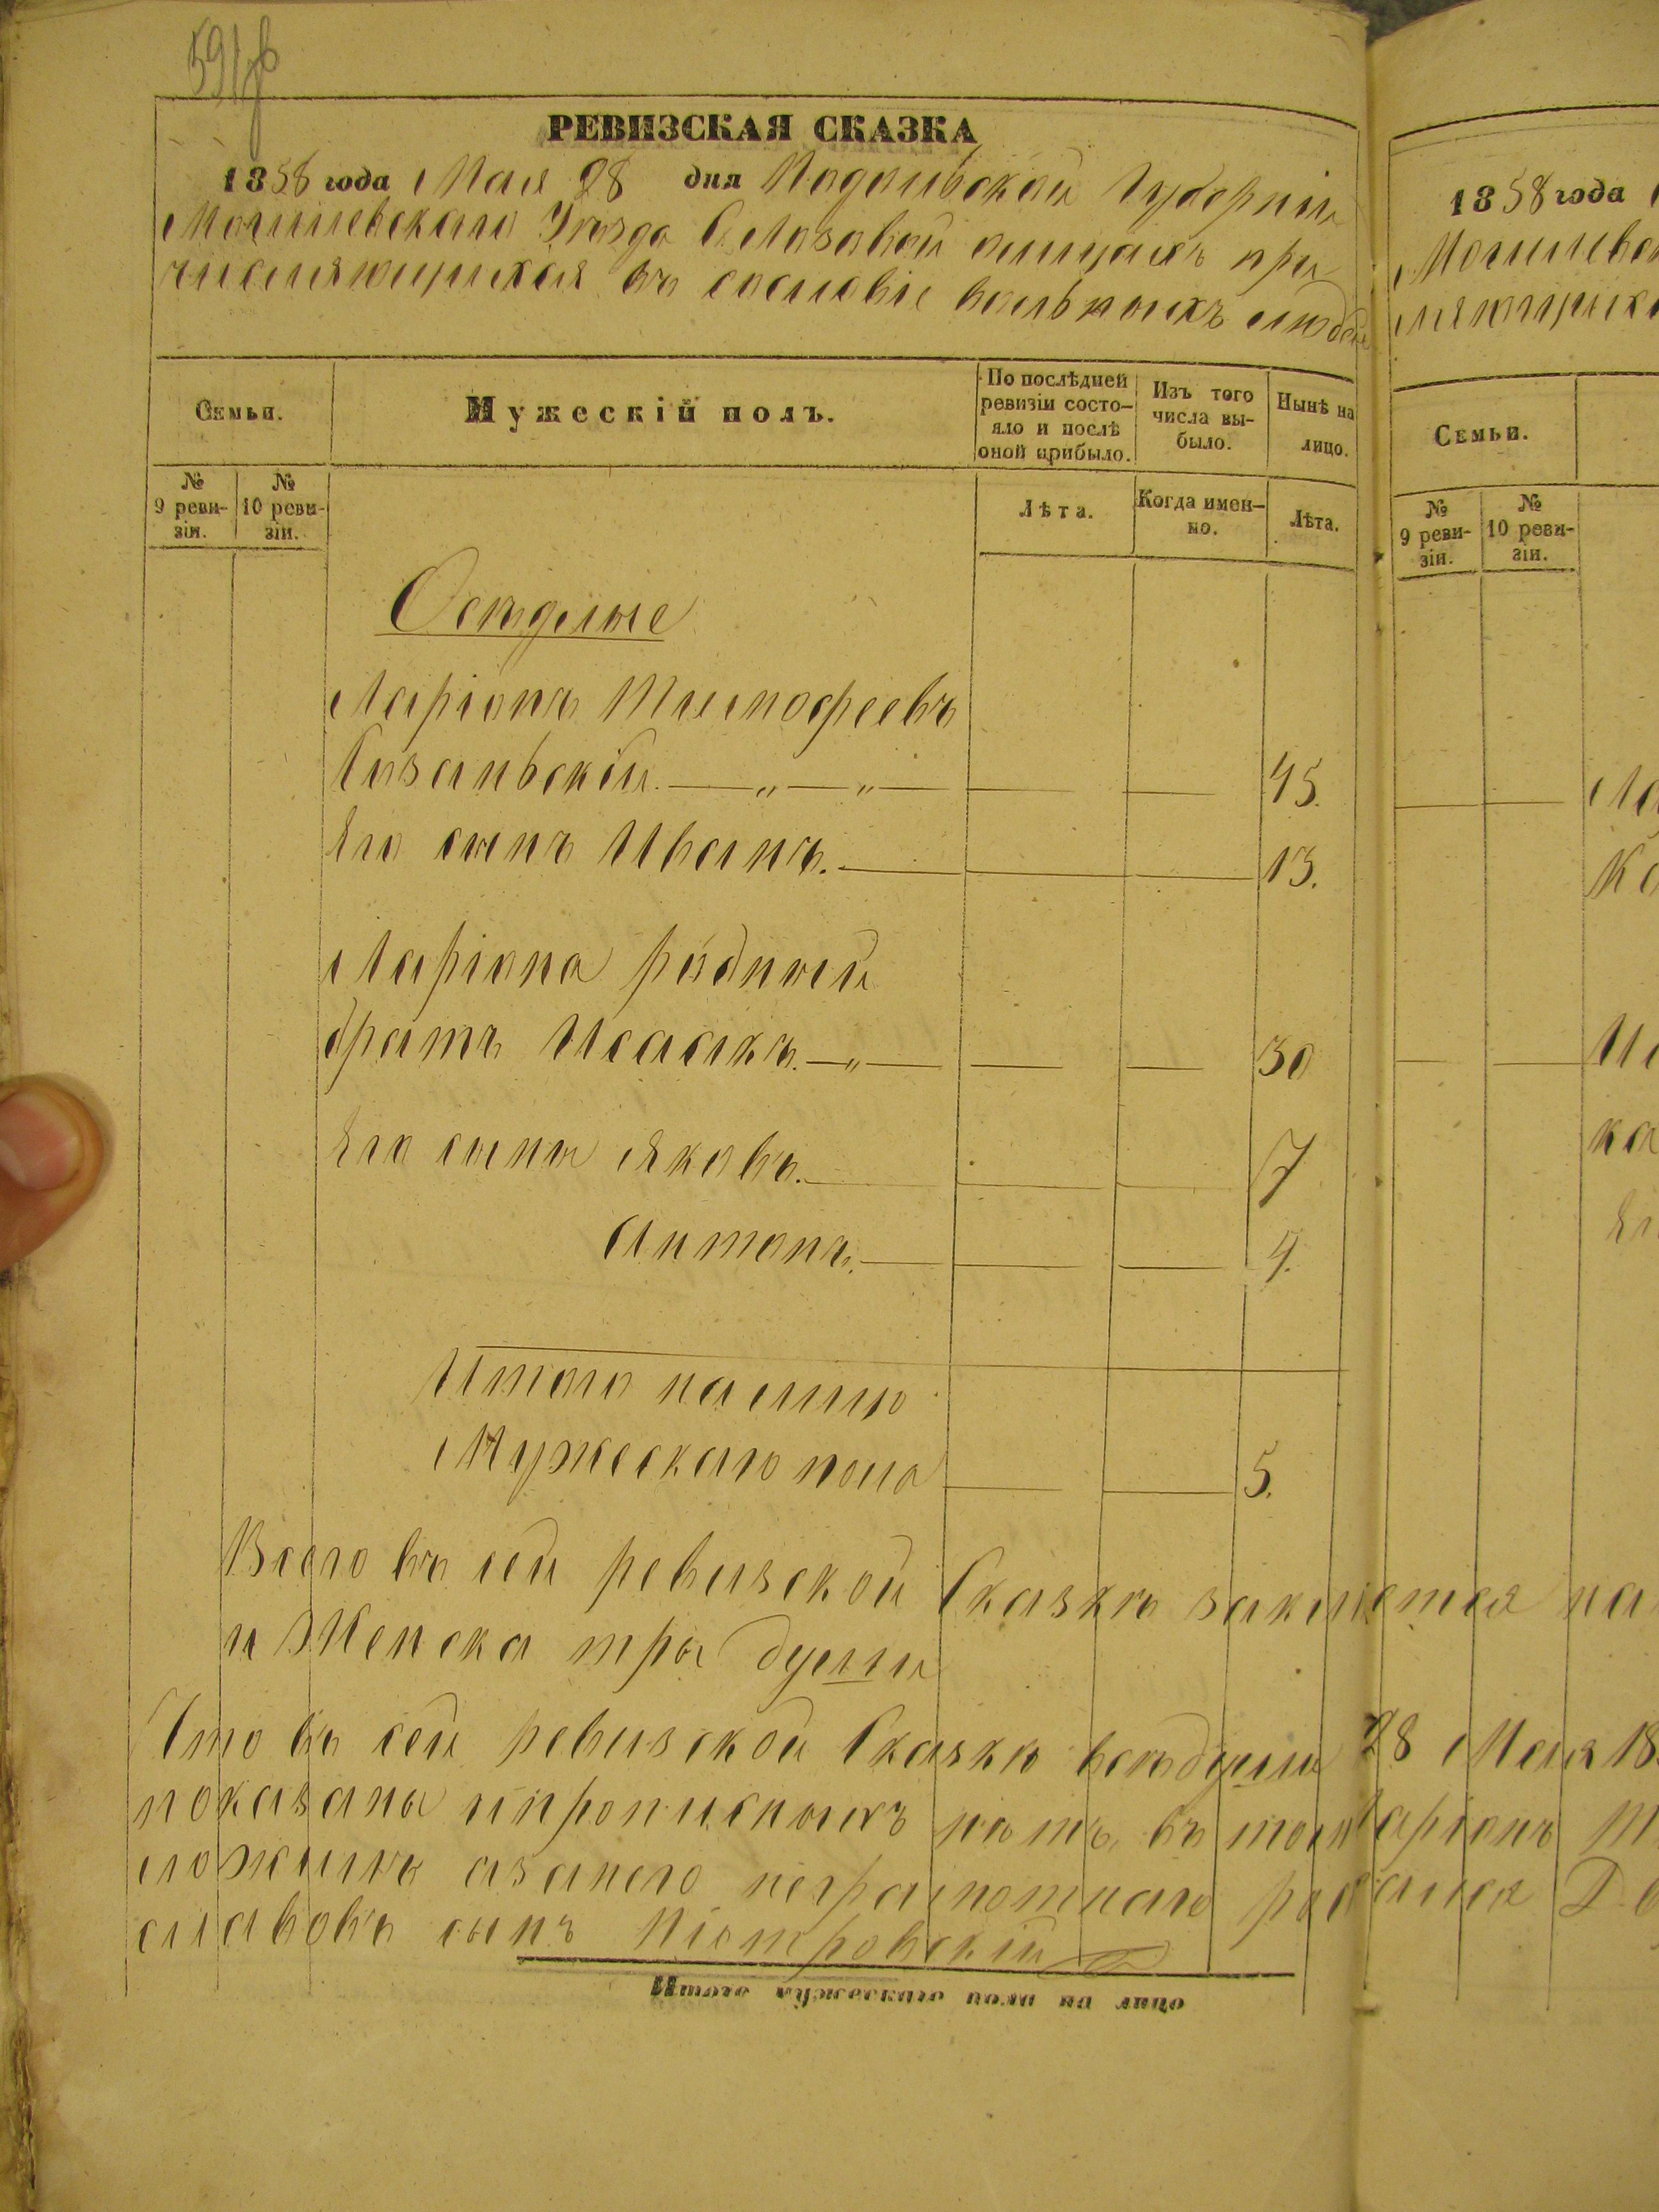 РЕВИЗСКАЯ СКАЗКА
1858 года Мая 28 дня Подольской Губерніи
Могилевскаго Уѣзда С. Лозовой о лицахъ при
числяющихся въ сословіе вольныхъ людей
Семьи.
Мужескій полъ.
По послѣдней
ревизіи состо-
яло и послѣ
оной прибыло.
Изъ того
числа вы-
было.
Нынѣ на
лицо.
№
9 реви-
зіи.
№
10 реви-
зіи.
Лѣта.
Когда имен-
но.
Лѣта.
Осѣдлые
Ларіонъ Тимофеевъ
Сазаньскій. 45.
Его сынъ Иванъ. 13.
Ларіона родный
братъ Исаакъ. 30
Его сыны Яковъ. 7
Антонъ. 4.
Итого на лицо
Мужескаго пола 5.
Всего въ сей ревизской Сказкѣ
и Женска три души
Что въ сей ревизской Сказкѣ всѣ души
показаны и прописныхъ нѣтъ, въ томъ
неграмотнаго
славовъ сынъ Піотровскій
Итого мужескаго пола на лицо
1858 года
Семьи.
№
9 реви-
зіи.
№
10 реви-
зіи.
28 Мая 18